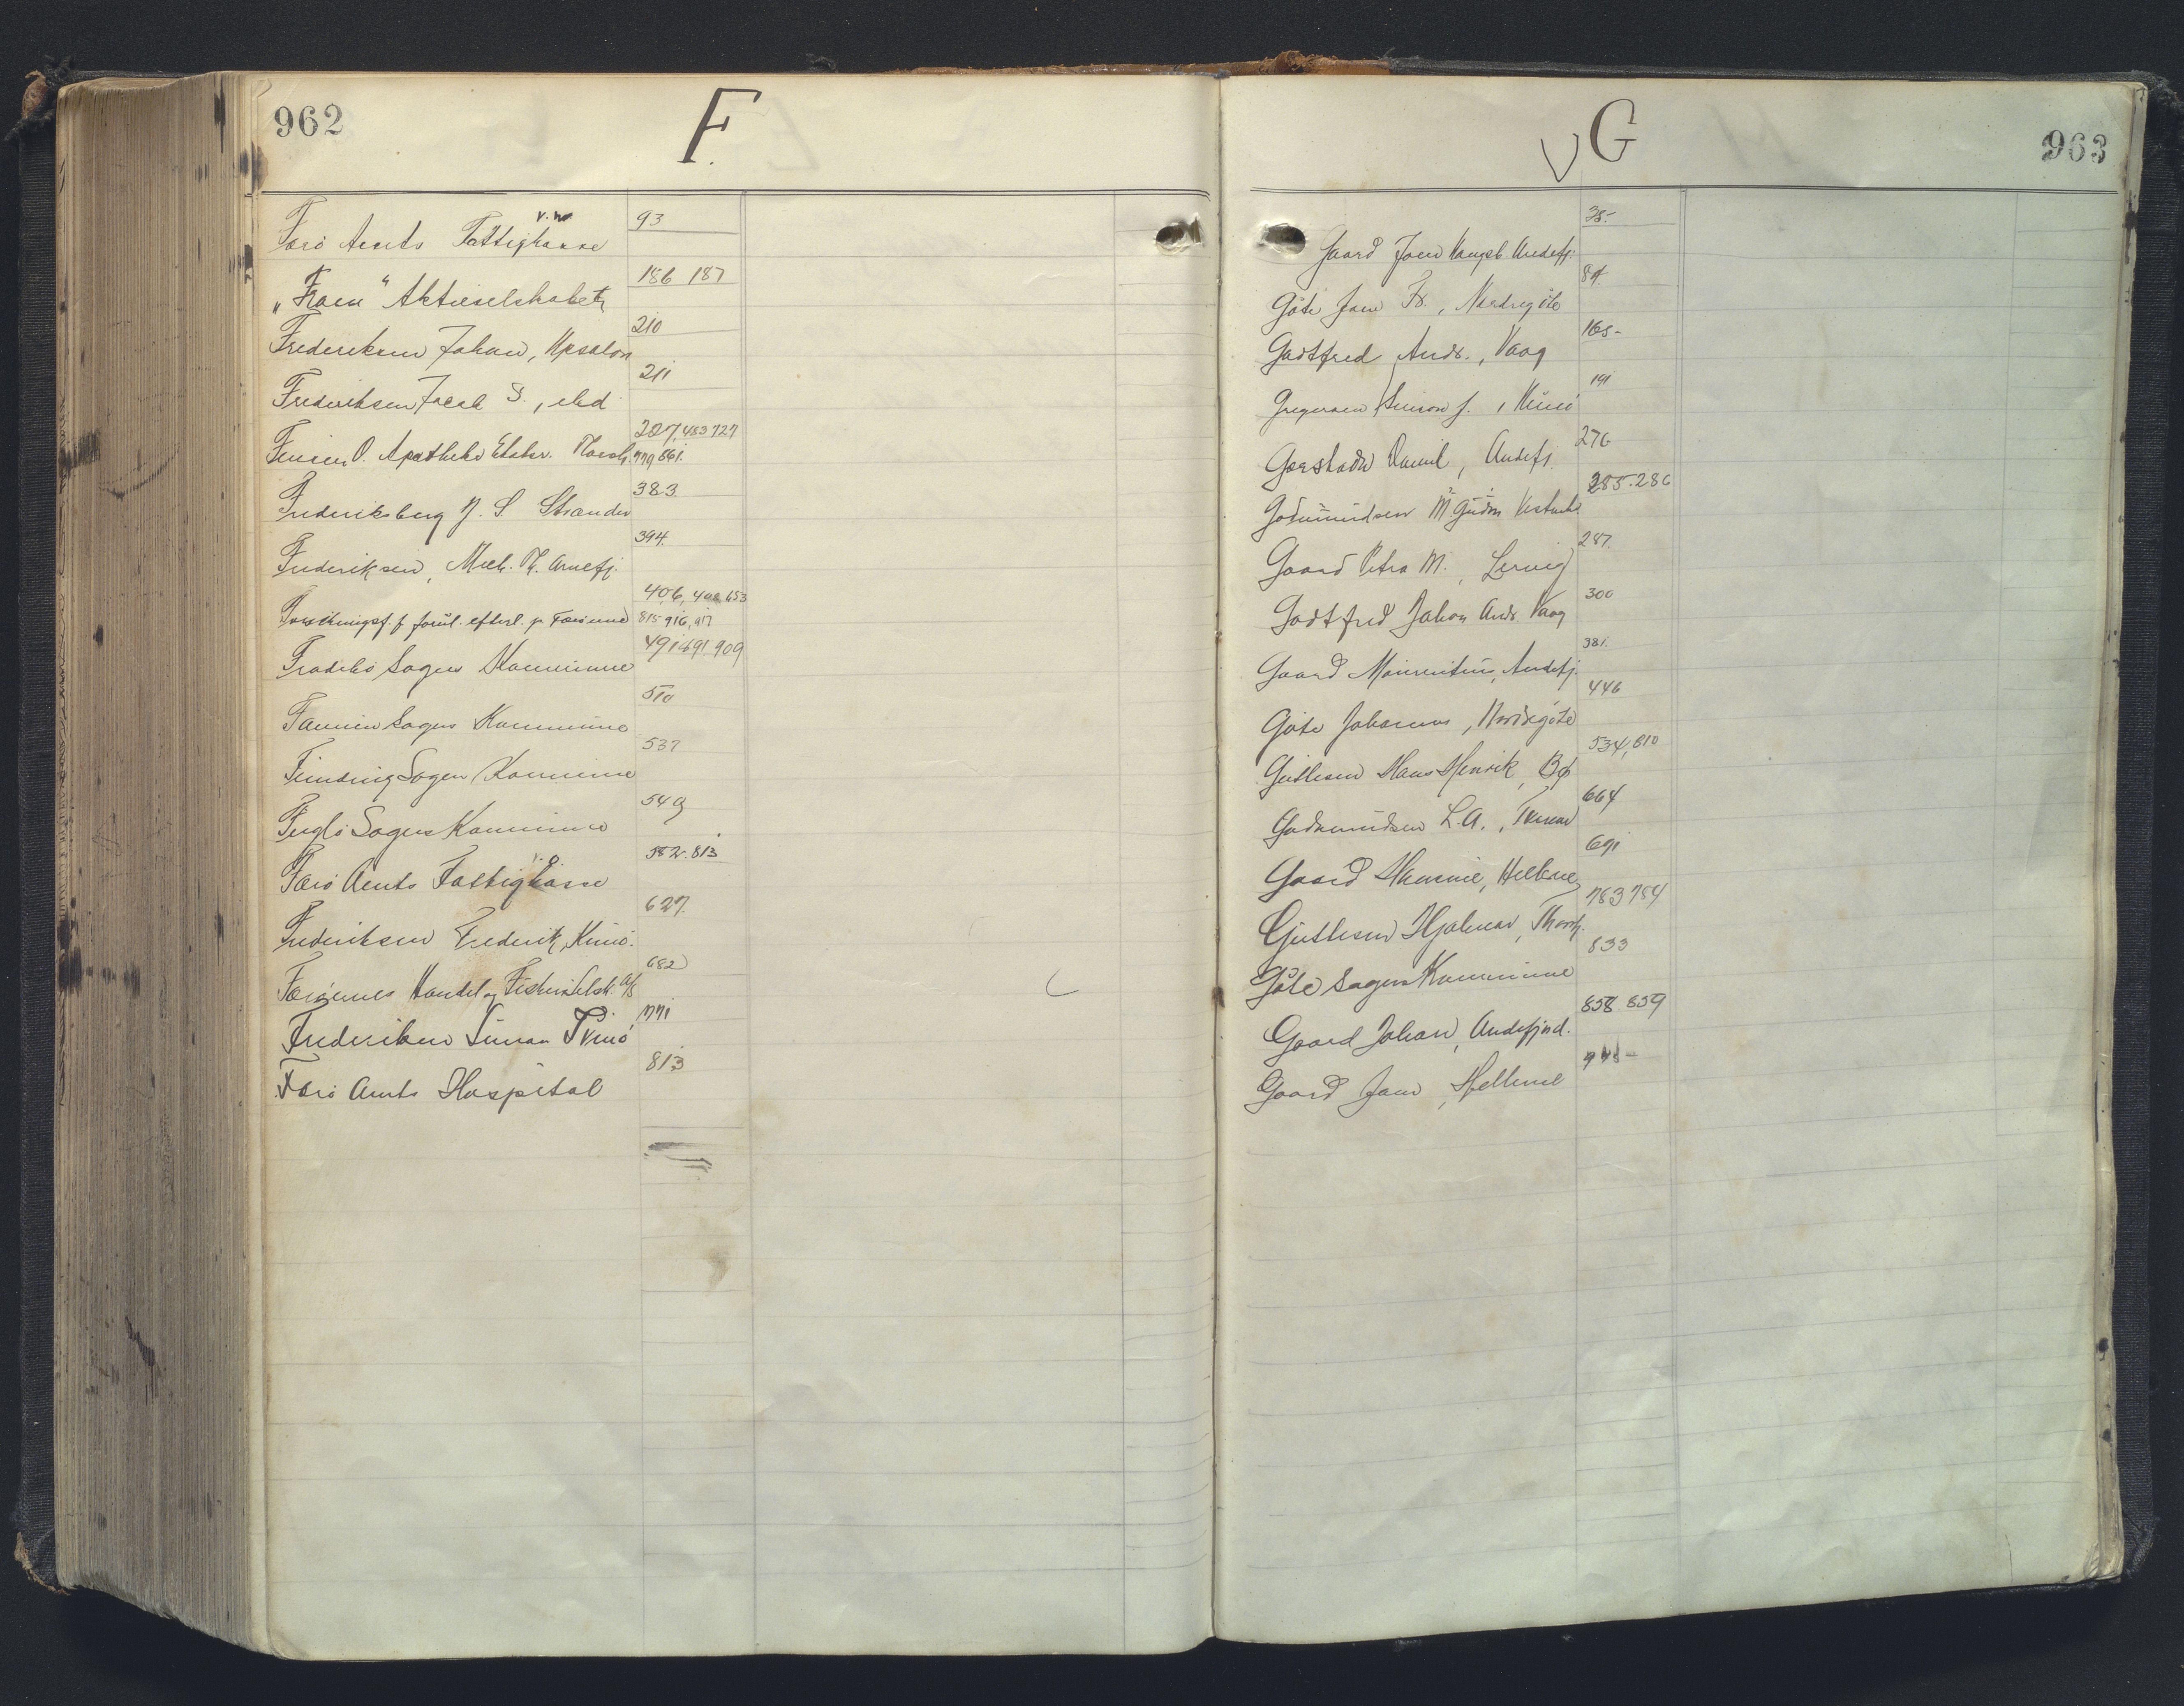 962
F.
Færö Amts Fattigkasse 93
„Fram" Aktieselskabet 186 187
Frederiksen Johan, Upsalon 210
Frederiksen Jacob S., ibd 211
Finsen O. Apotheker Etatsr. Thorsh. 227, 483 727
779 861.
Frederiksberg J. S. Strænder 383
Frederiksen, Mich. Arnefj. 394.
f. efterl. p. Færöerne 406, 653
815 916, 917
Fradebö Sogns Kommune 491 691. 909
Famien Sogns Kommune 510
Funding Sogns Kommune 537
Fuglö Sogns Kommune 549
Færö Amts Fattigkasse 582. 813
Frederiksen Frederik, Kunö. 627.
Færöernes Handel og Fiskeriselsk. A/S 682
Frederiksen Simon Kunö 771
Færö Amts Hospital 813
963
G
Gaard Joen Andefj. 38.-
Göte Joen Fr., Nordregöte 84.
Godtfred Andr., Vaag 165-
Gregersen Simon J., Kunö 191
Daniel, Andefj. 276
Godmundsen M. 285. 286
Gaard Petra M., Lervig 287.
Godtfred Johan Andr. Vaag 300
Gaard Mourentius, Andefj. 381.
Göte Johannes, Nordregöte 446
Guttesen Hans Henrik, Bø 534, 810
Gudmundsen L.A., 664
Gaard Hellerne 691
Guttesen Hjalmar, Thorsh. 783 784
Göte Sogns Kommune 833
Gaard Johan, Andefjord. 858 859
Gaard Joen, Hellerne